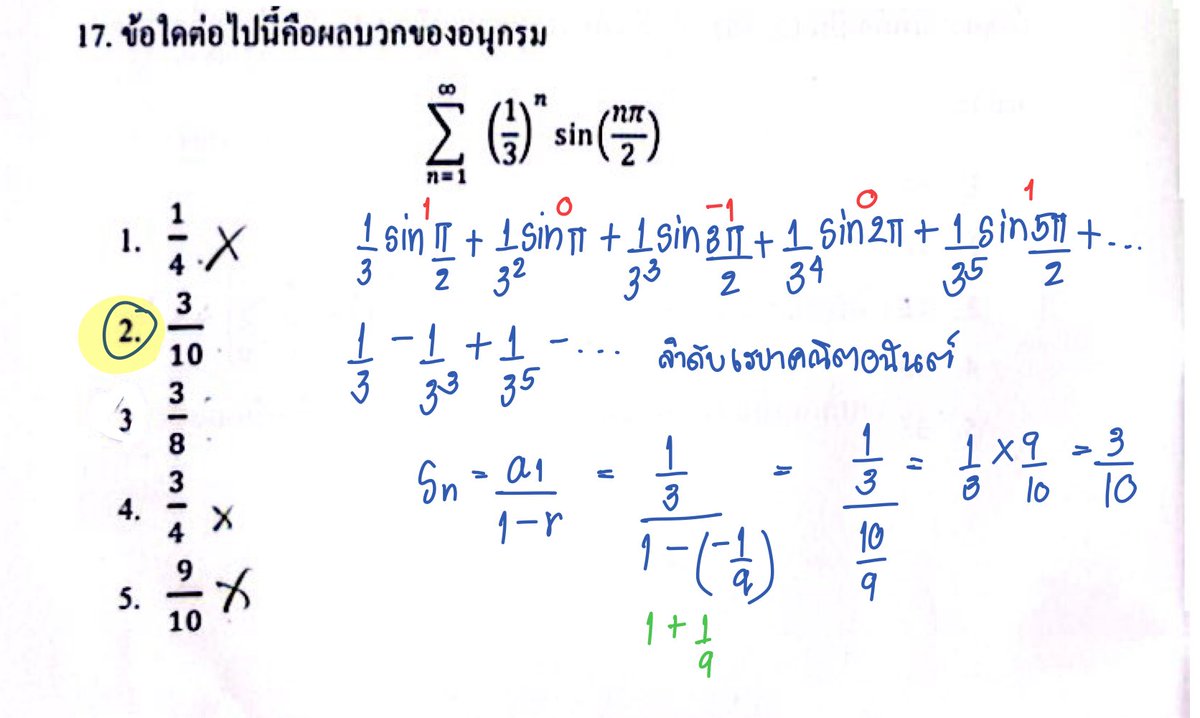 17. ข้อใดต่อไปนี้คือผลบวกของอนุกรม
∞
∑ (1/3)^n sin(nπ/2)
n=1
1. 1/4 X
2. 3/10
3 3/8
4. 3/4 X
5. 9/10 X
1 0 -1 0 1
1/3 sin π/2 + 1/3^2 sin π + 1/3^3 sin 3π/2 + 1/3^4 sin 2π + 1/3^5 sin 5π/2 + ...
1/3 - 1/3^3 + 1/3^5 - ... ลำดับเรขาคณิตอนันต์
Sn = a1/(1-r) = (1/3)/(1-(-1/9)) = (1/3)/(10/9) = 1/3 × 9/10 = 3/10
1 + 1/9